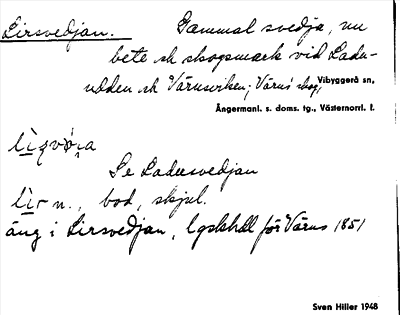 Lirsvedjan. Gammal svedja, nu
bete och skogsmark vid Ladu-
udden och Värnsviken; Värns' skog, Vibyggerå sn,
Ångermanl. s. doms. tg., Västernorrl. l.
Se Laduesvedjan
lir n., bod, skjul.
äng i Lirsvedjan, lgskhdl för Värns 1851
Sven Hiller 1948